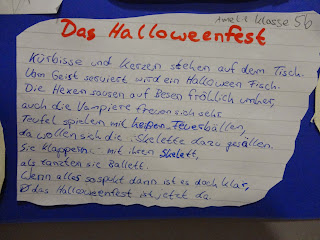 Klasse 5b
Das Halloweenfest
Kürbisse und Kerzen stehen auf dem Tisch.
Vom Geist serviert wird ein Halloween Fisch.
Die Hexen sausen auf Besen fröhlich umher,
auch die Vampiere freuen sich sehr.
Teufel spielen mit heißen Feuerbällen,
da wollen sich die Skelette dazu gesellen.
Sie klappern mit ihren Skelett,
als tanzten sie Ballett.
Wenn alles so spukt dann ist es doch klar,
das Halloweenfest ist jetzt da.